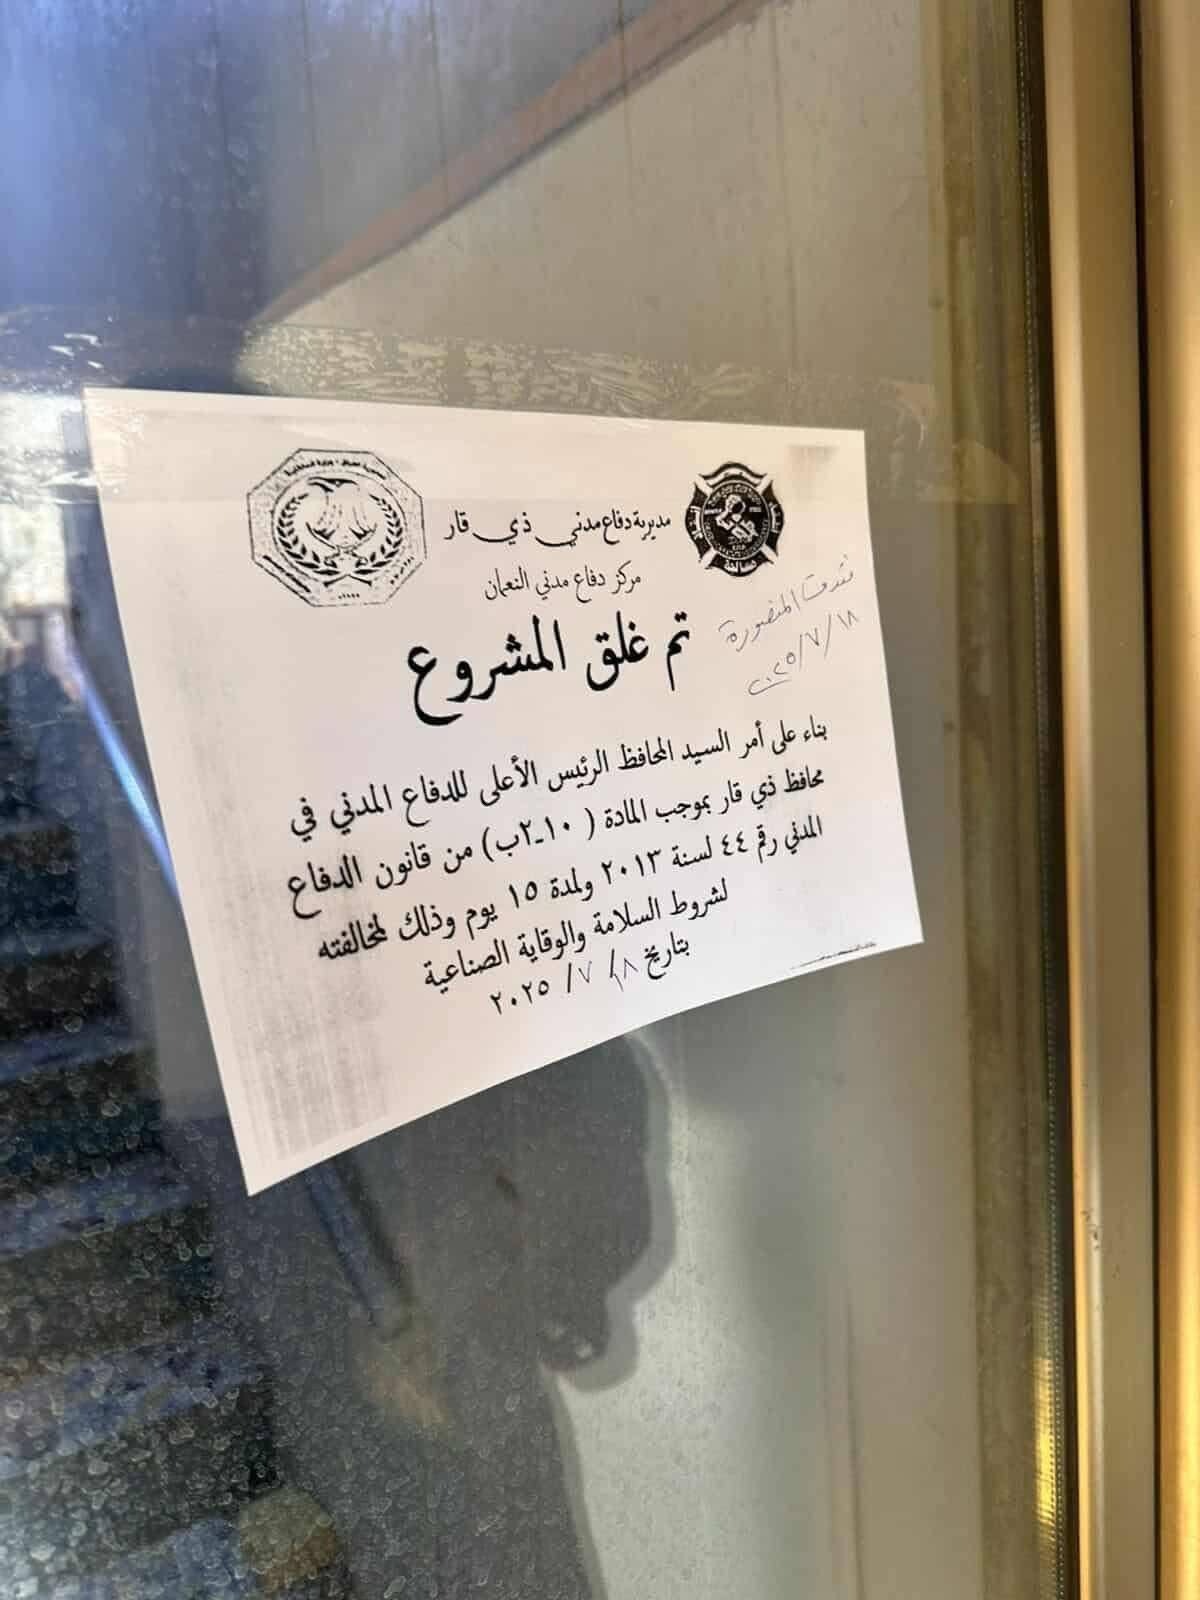 مديرية دفاع مدني ذي قار
مركز دفاع مدني النعمان
تم غلق المشروع
المنصورة
٢٠٢٥/٧/١٨
بناء على أمر السيد المحافظ الرئيس الأعلى للدفاع المدني في
محافظ ذي قار بموجب المادة ( ١٠-٢ب) من قانون الدفاع
المدني رقم ٤٤ لسنة ٢٠١٣ ولمدة ١٥ يوم وذلك لمخالفته
لشروط السلامة والوقاية الصناعية
بتاريخ ١٨ / ٧ / ٢٠٢٥